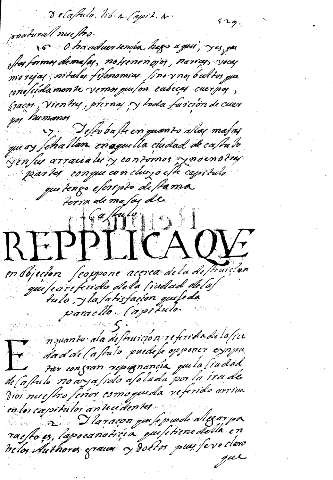 De Castulo. lib. 2. Capit. 4.
229.
natural nuestro.
6. Otra aduertencia hago aqui, y es, que
estas formas de masas, no tienen ojos, narizes, orejas
ni rejas, ni tales fisonomias sino vnos bultos que
conosidamente vemos que son cabeças cuerpos,
braços, vientres, piernas, y toda faicion de cuer
pos humanos
7. Desto baste en quanto a las masas
que oy se hallan en aquella ciudad de castulo
y en sus arraciales y contornos y no en otras
partes con que concluyo este capitulo
que tengo escripto de la ma
teria de masas de
Castulo
REPPLICA QVE
en objecion se oppone acerca de la destruicion
que se a referido de la ciudad de Cas
tulo. y la satisfacion que se da
para ello. Capitulo.
5.
En quanto a la destruicion referida de la ciu
dad de Castulo puedese opponer e ynpu
tar con gran repugnancia que la ciudad
de castulo no aya sido asolada por la ira de
Dios nuestro señor como queda referido arriua
en los capitulos antecedentes.
2. La raçon que se puede alegar pa
ra esto es, la poca noticia que se tiene della en
los Authores graues y doctos pues se ve claro
que